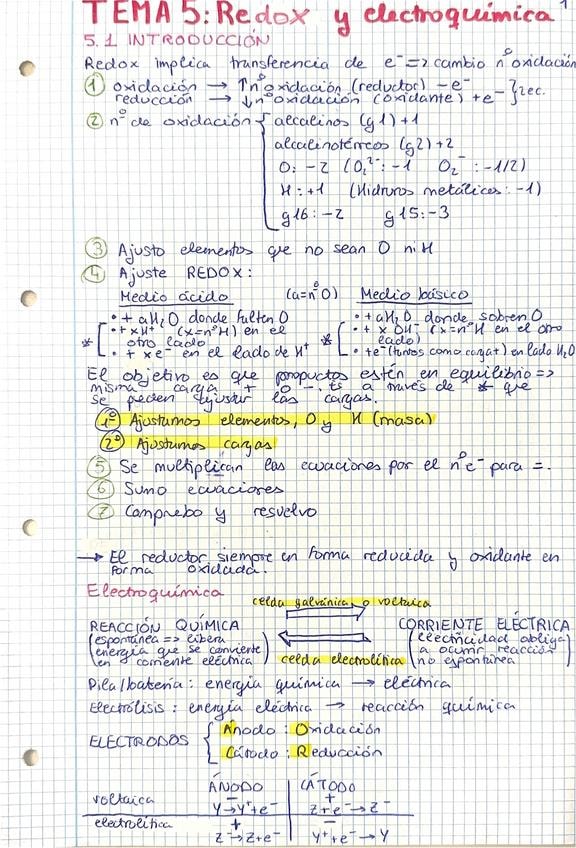 TEMA 5: Redox y electroquímica 1
5.1 INTRODUCCIÓN
Redox implica transferencia de e⁻ => cambio nº oxidación
① oxidación → ↑nº oxidación (reductor) -e⁻ } 2ec.
reducción → ↓nº oxidación (oxidante) +e⁻
② nº de oxidación { alcalinos (g1) +1
alcalinotérreos (g2) +2
O: -2 (O₂²⁻: -1 O₂⁻: -1/2)
H: +1 (Hidruros metálicos: -1)
g16: -2 g15: -3
③ Ajusto elementos que no sean O ni H
④ Ajuste REDOX:
Medio ácido (a=nºO) Medio básico
• + aH₂O donde falten O • + aH₂O donde sobren O
* [ • + xH⁺ (x=nºH) en el otro lado * [ • + x OH⁻ (x=nºH en el otro lado)
• + xe⁻ en el lado de H⁺ • +e⁻ (tantos como carga⊕) en lado H₂O
El objetivo es que productos estén en equilibrio =>
misma carga + o -. ts a través de * que
se pueden ajustar las cargas.
①º Ajustamos elementos, O y H (masa)
②º Ajustamos cargas
⑤ Se multiplican las ecuaciones por el nºe⁻ para =.
⑥ Sumo ecuaciones
⑦ Compruebo y resuelvo
→ El reductor siempre en forma reducida y oxidante en
forma oxidada.
Electroquímica
celda galvánica o voltaica
REACCIÓN QUÍMICA CORRIENTE ELÉCTRICA
(espontánea => libera energía que se convierte en corriente eléctrica) (electricidad obliga a ocurrir reacción no espontánea)
celda electrolítica
Pila/batería: energía química → eléctrica
Electrólisis: energía eléctrica → reacción química
ELECTRODOS { Ánodo: Oxidación
Cátodo: Reducción
ÁNODO CÁTODO
voltaica - Y → Y⁺+e⁻ + Z+e⁻ → Z⁻
electrolítica + Z⁻ → Z+e⁻ - Y⁺+e⁻ → Y